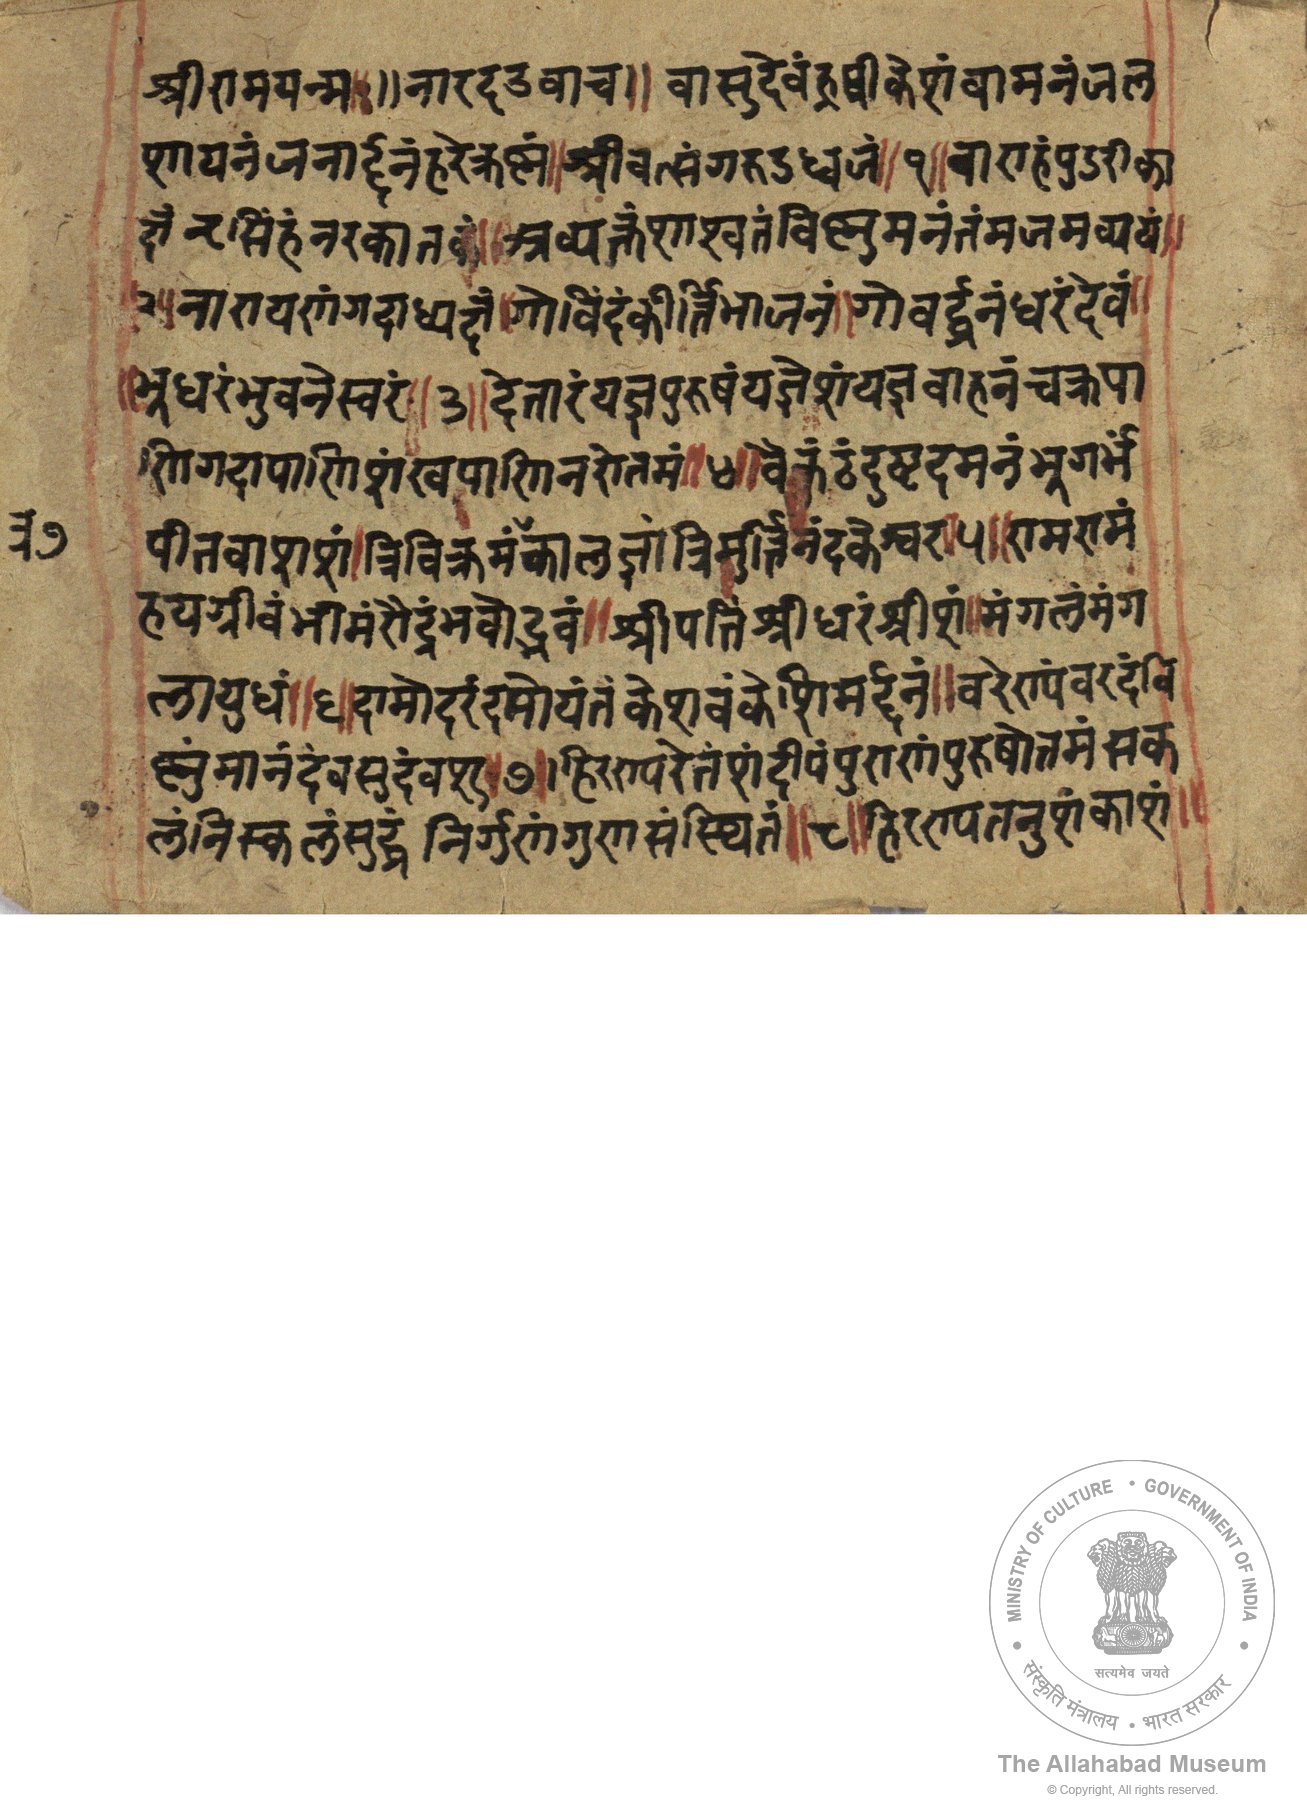 श्रीरामयन्म ॥ नारदउवाच ॥ वासुदेवंह्रषीकेशंवामनंजल
शायनंजनार्द्दनंहरेक्रष्नं ॥ श्रीवत्संगरुडध्वजं ॥ १ ॥ वाराहंपुडरीका
क्षंनरसिंहंनरकातकं ॥ अव्यक्तंशाश्वतंविष्नुमनंतंमजमव्ययं ॥
२ ॥ नारायणंगदाध्यक्षं । गोविंदंकीर्त्तिभाजनं ॥ गोवर्द्धनंधरंदेवं ॥
॥ भूधरंभुवनेस्वरं ॥ ३ ॥ वेत्तारंयज्ञपुरुषंयज्ञेशंयज्ञवाहनंचक्रपा
णिगदापाणिशंखपाणिनरोतमं ॥ ४ ॥ वैकंठंदुष्टदमनंभूगर्भं
पीतवाशशं । त्रिविक्रमंकालज्ञांत्रिमुर्त्तिनंदकैश्वर । ५ ॥ रामरामं
३७
हयग्रीवंभीमंरौद्रंभवोद्भवं ॥ श्रीपतिंश्रीधरंश्रीशं ॥ मंगलंमंग
लायुधं ॥ ६ ॥ दामोदरंदमोयंतंकेशवंकेशिमर्द्दनं ॥ वरेणपंवरदंवि
ष्नुंमानंदंवसुदंवशु । ७ । हिरणपरेतंशंदीपंपुराणंपुरुषोतमंसक
लंनिस्कलंसुद्धंनिर्गुणंगुणसंस्थितं ॥ ८ ॥ हिरणपतनुशंकाशं ॥
MINISTRY OF CULTURE • GOVERNMENT OF INDIA
सत्यमेव जयते
संस्कृति मंत्रालय • भारत सरकार
The Allahabad Museum
© Copyright, All rights reserved.